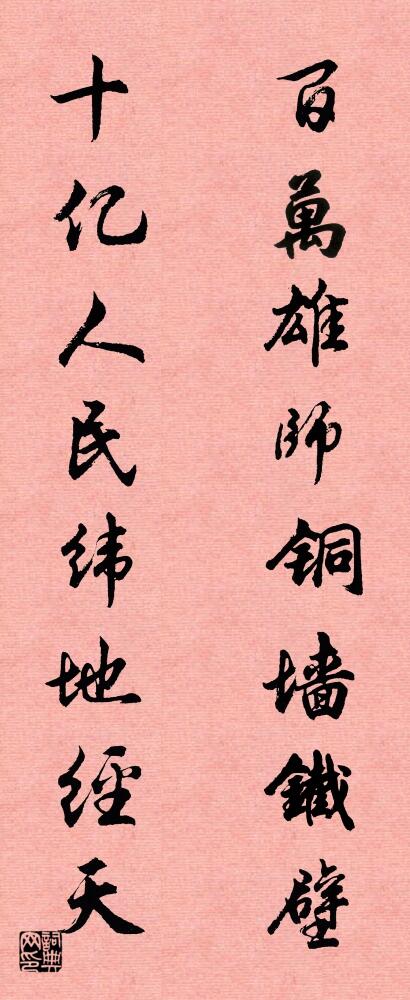 百萬雄師铜墙鐵壁
十亿人民纬地經天
詞典网